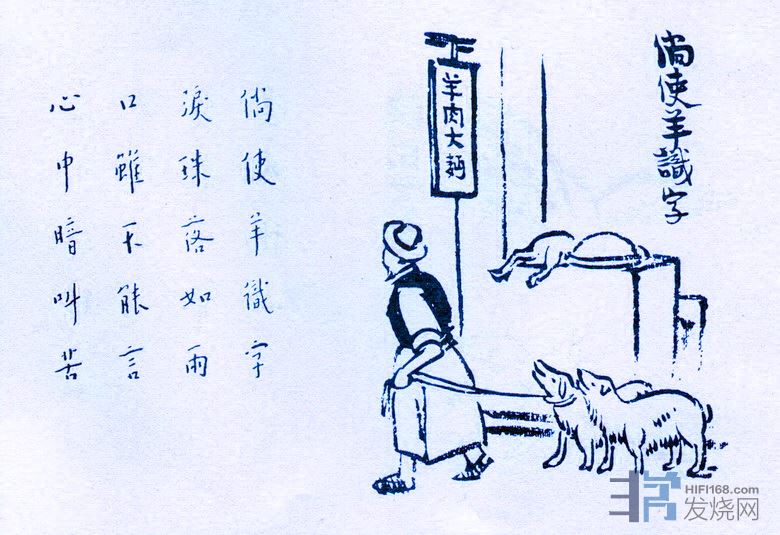 倘使羊識字
羊肉大麪
倘使羊識字
淚珠落如雨
口雖不能言
心中暗叫苦
HIFI168.com
发烧网